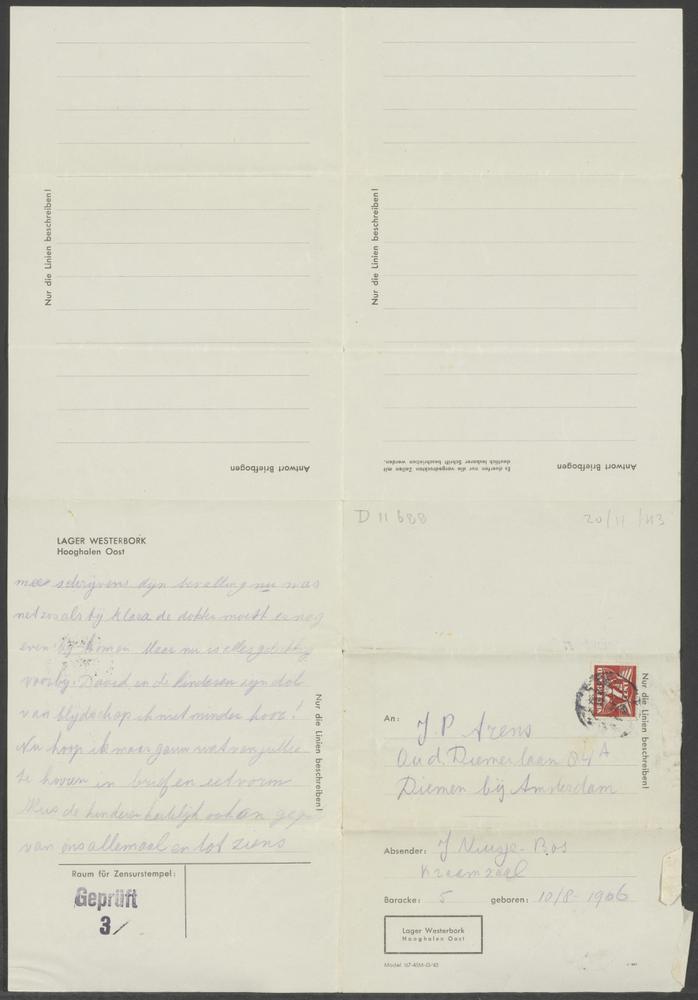 Nur die Linien beschreiben!
Nur die Linien beschreiben!
Antwort Briefbogen
Es duerfen nur die vorgedruckten Zeilen mit
deutlich lesbarer Schrift beschrieben werden.
Antwort Briefbogen
D 11 688
20/11/43
LAGER WESTERBORK
Hooghalen Oost
schrijvens bevalling nu was
net zoals bij Klara de dokter moest er nog
even bij komen Maar nu is alles gelukkig
voorbij. David en de kinderen zijn dol
van blijdschap ik niet minder hoor!
Nu hoop ik maar gauw wat van jullie
te horen in brief en eetvorm
Kus de kinderen hartelijk
van ons allemaal en tot ziens
Nur die Linien beschreiben!
Raum für Zensurstempel:
Geprüft
3/
NEDERLAND
7½
CENT
Nur die Linien beschreiben!
An: J. P. Arens
Oud. Diemerlaan 84A
Diemen bij Amsterdam
Absender: J Bos
Kraamzaal
Baracke: 5 geboren: 10/8-1906
Lager Westerbork
Hooghalen Oost